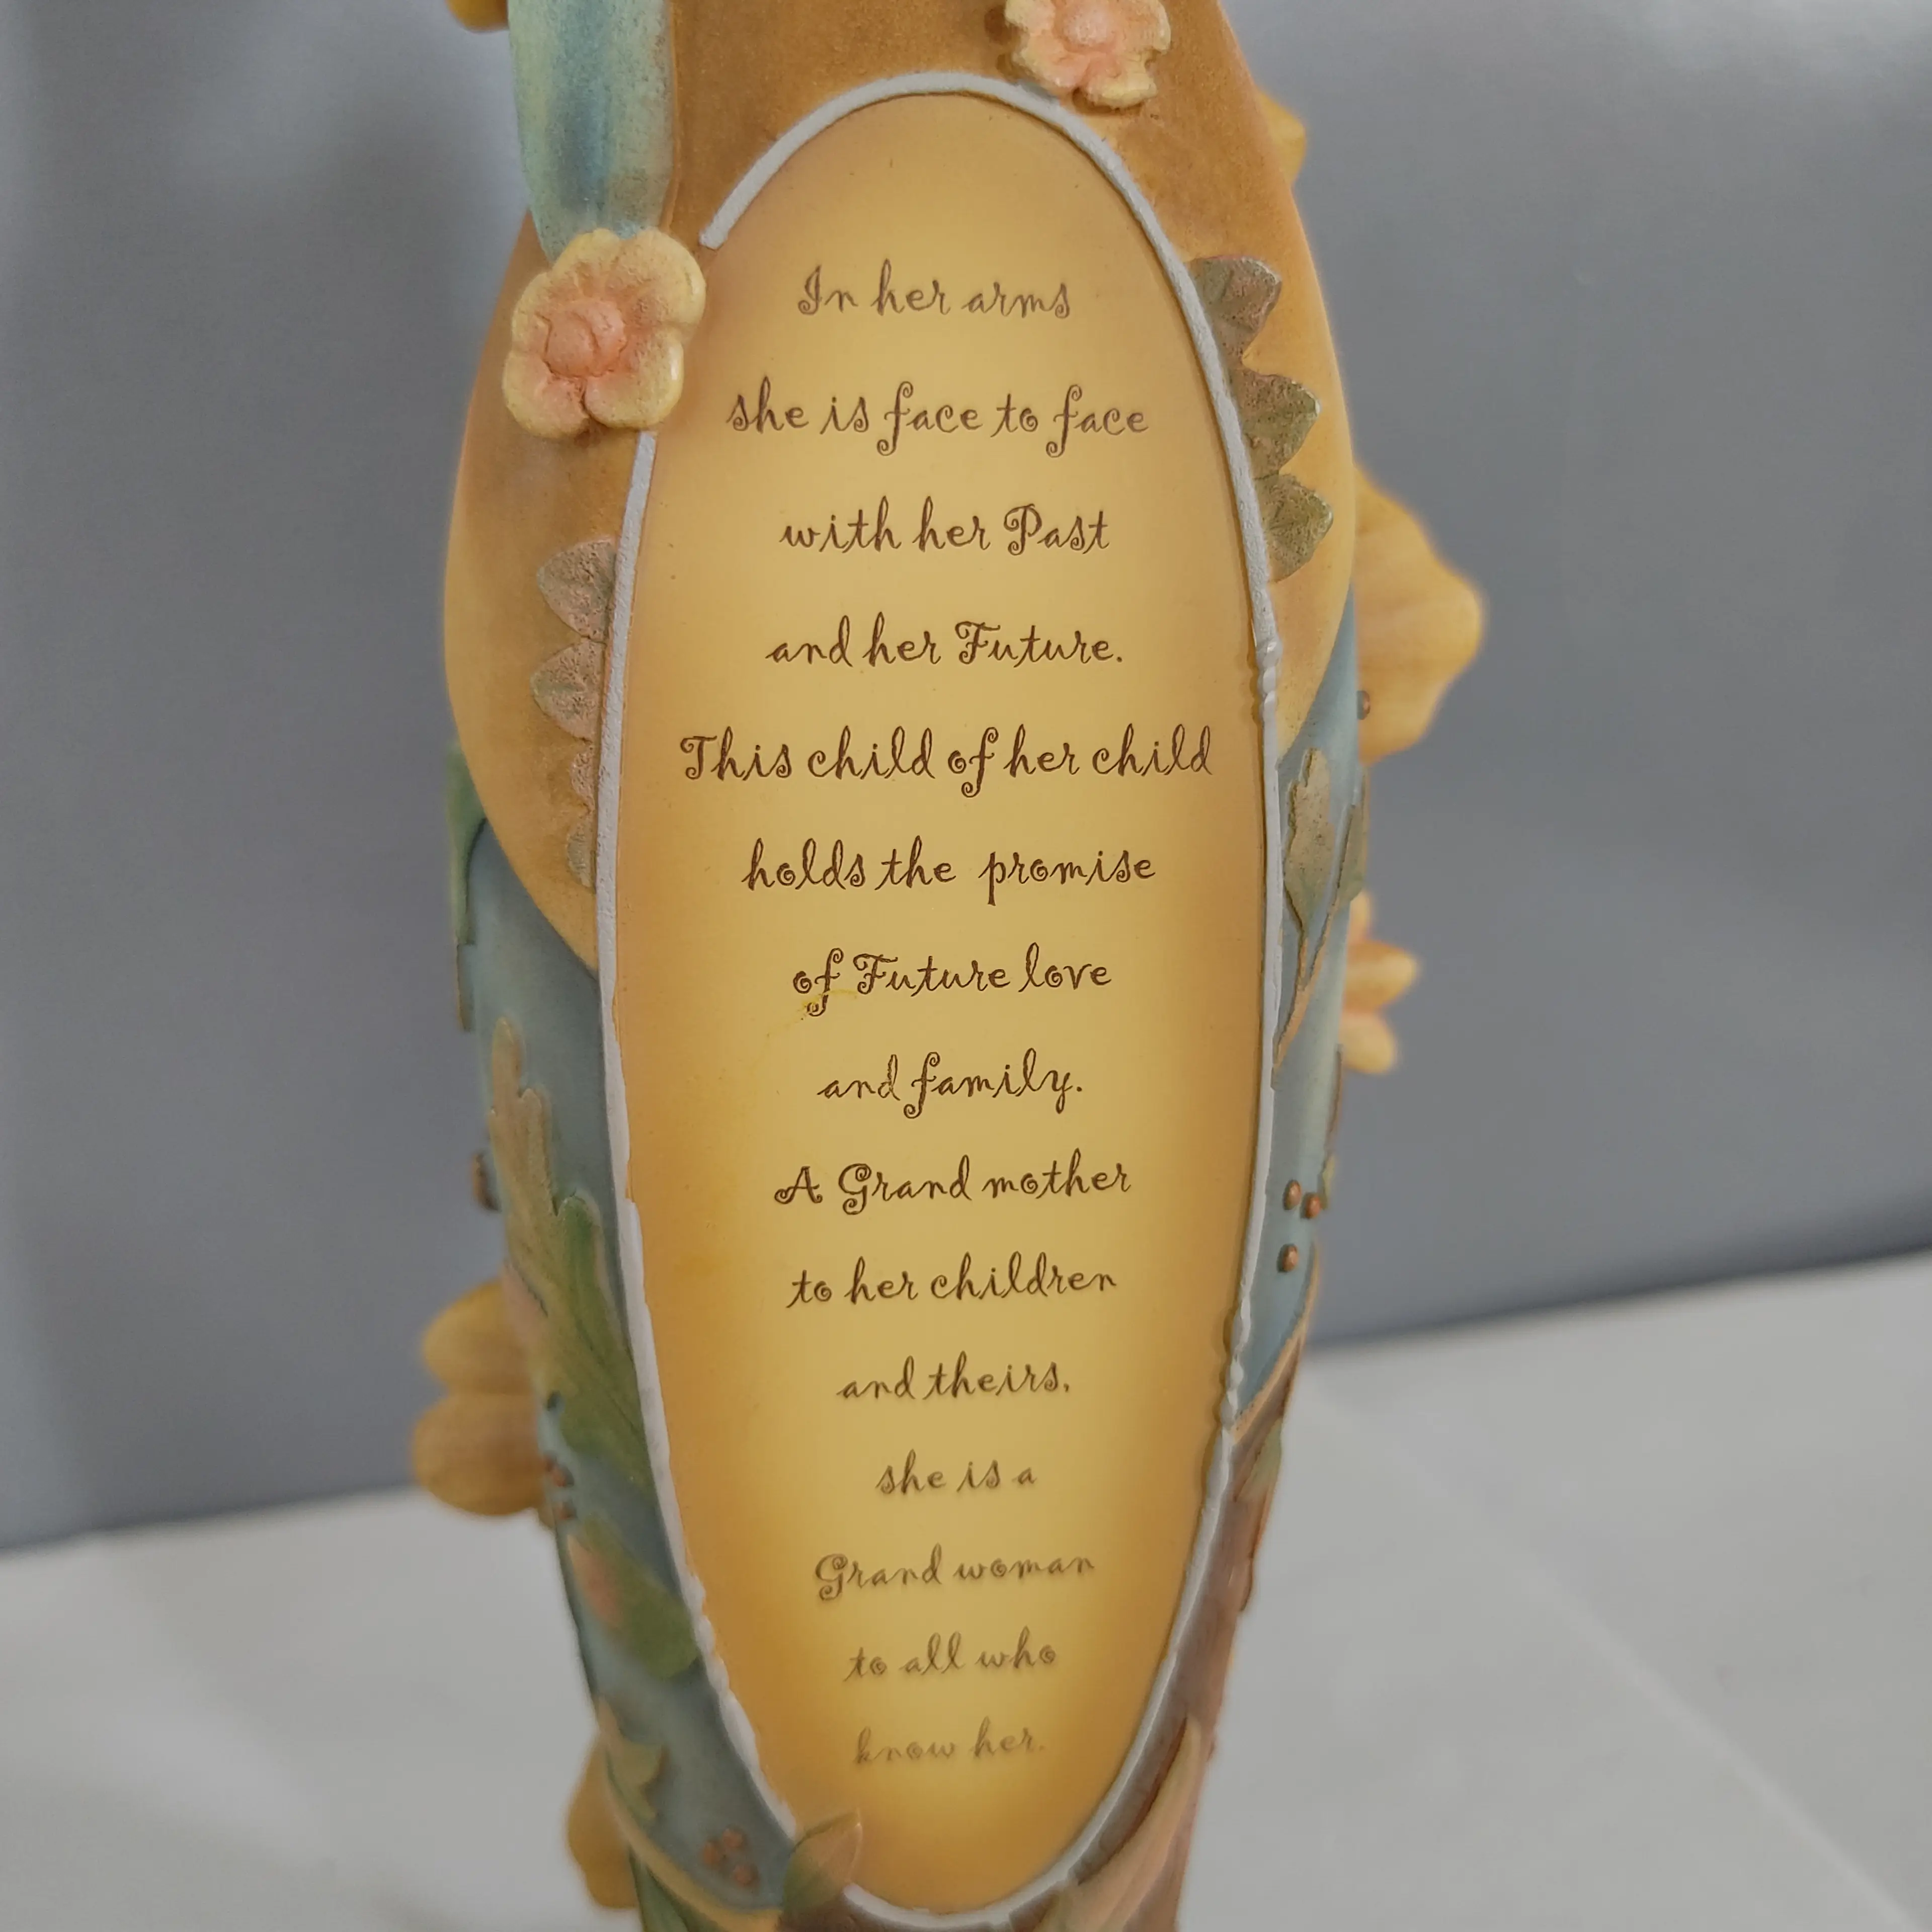 In her arms
she is face to face
with her Past
and her Future.
This child of her child
holds the promise
of Future love
and family.
A Grand mother
to her children
and theirs,
she is a
Grand woman
to all who
know her.